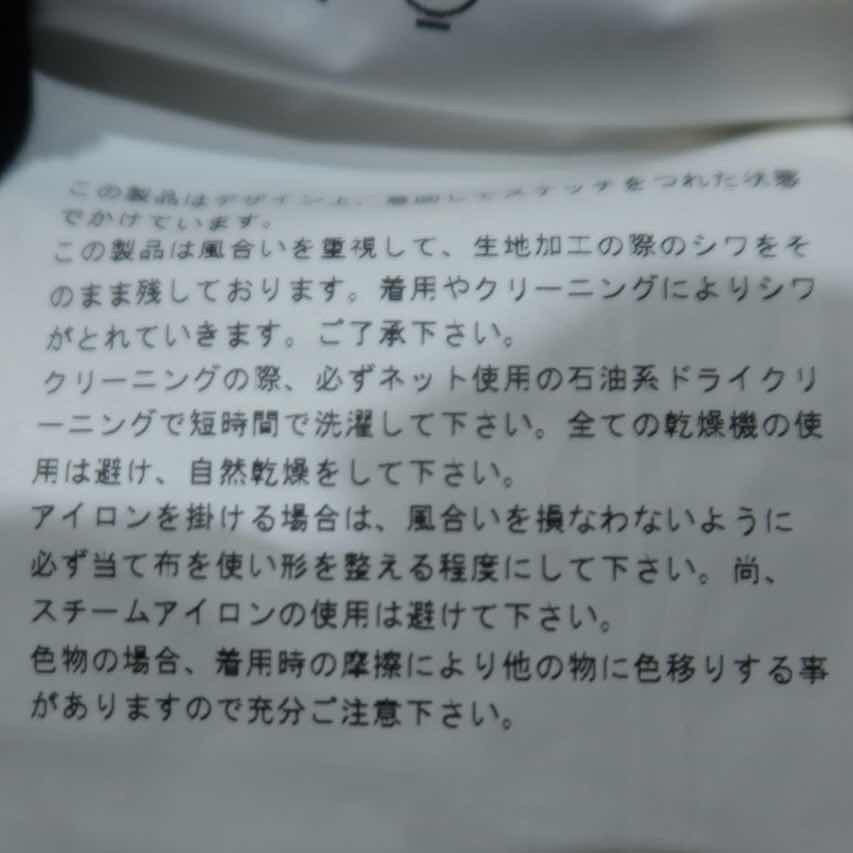 この製品はデザイン上、ステッチをつれた状態
でかけています。
この製品は風合いを重視して、生地加工の際のシワをそ
のまま残しております。着用やクリーニングによりシワ
がとれていきます。ご了承下さい。
クリーニングの際、必ずネット使用の石油系ドライクリ
ーニングで短時間で洗濯して下さい。全ての乾燥機の使
用は避け、自然乾燥をして下さい。
アイロンを掛ける場合は、風合いを損なわないように
必ず当て布を使い形を整える程度にして下さい。尚、
スチームアイロンの使用は避けて下さい。
色物の場合、着用時の摩擦により他の物に色移りする事
がありますので充分ご注意下さい。